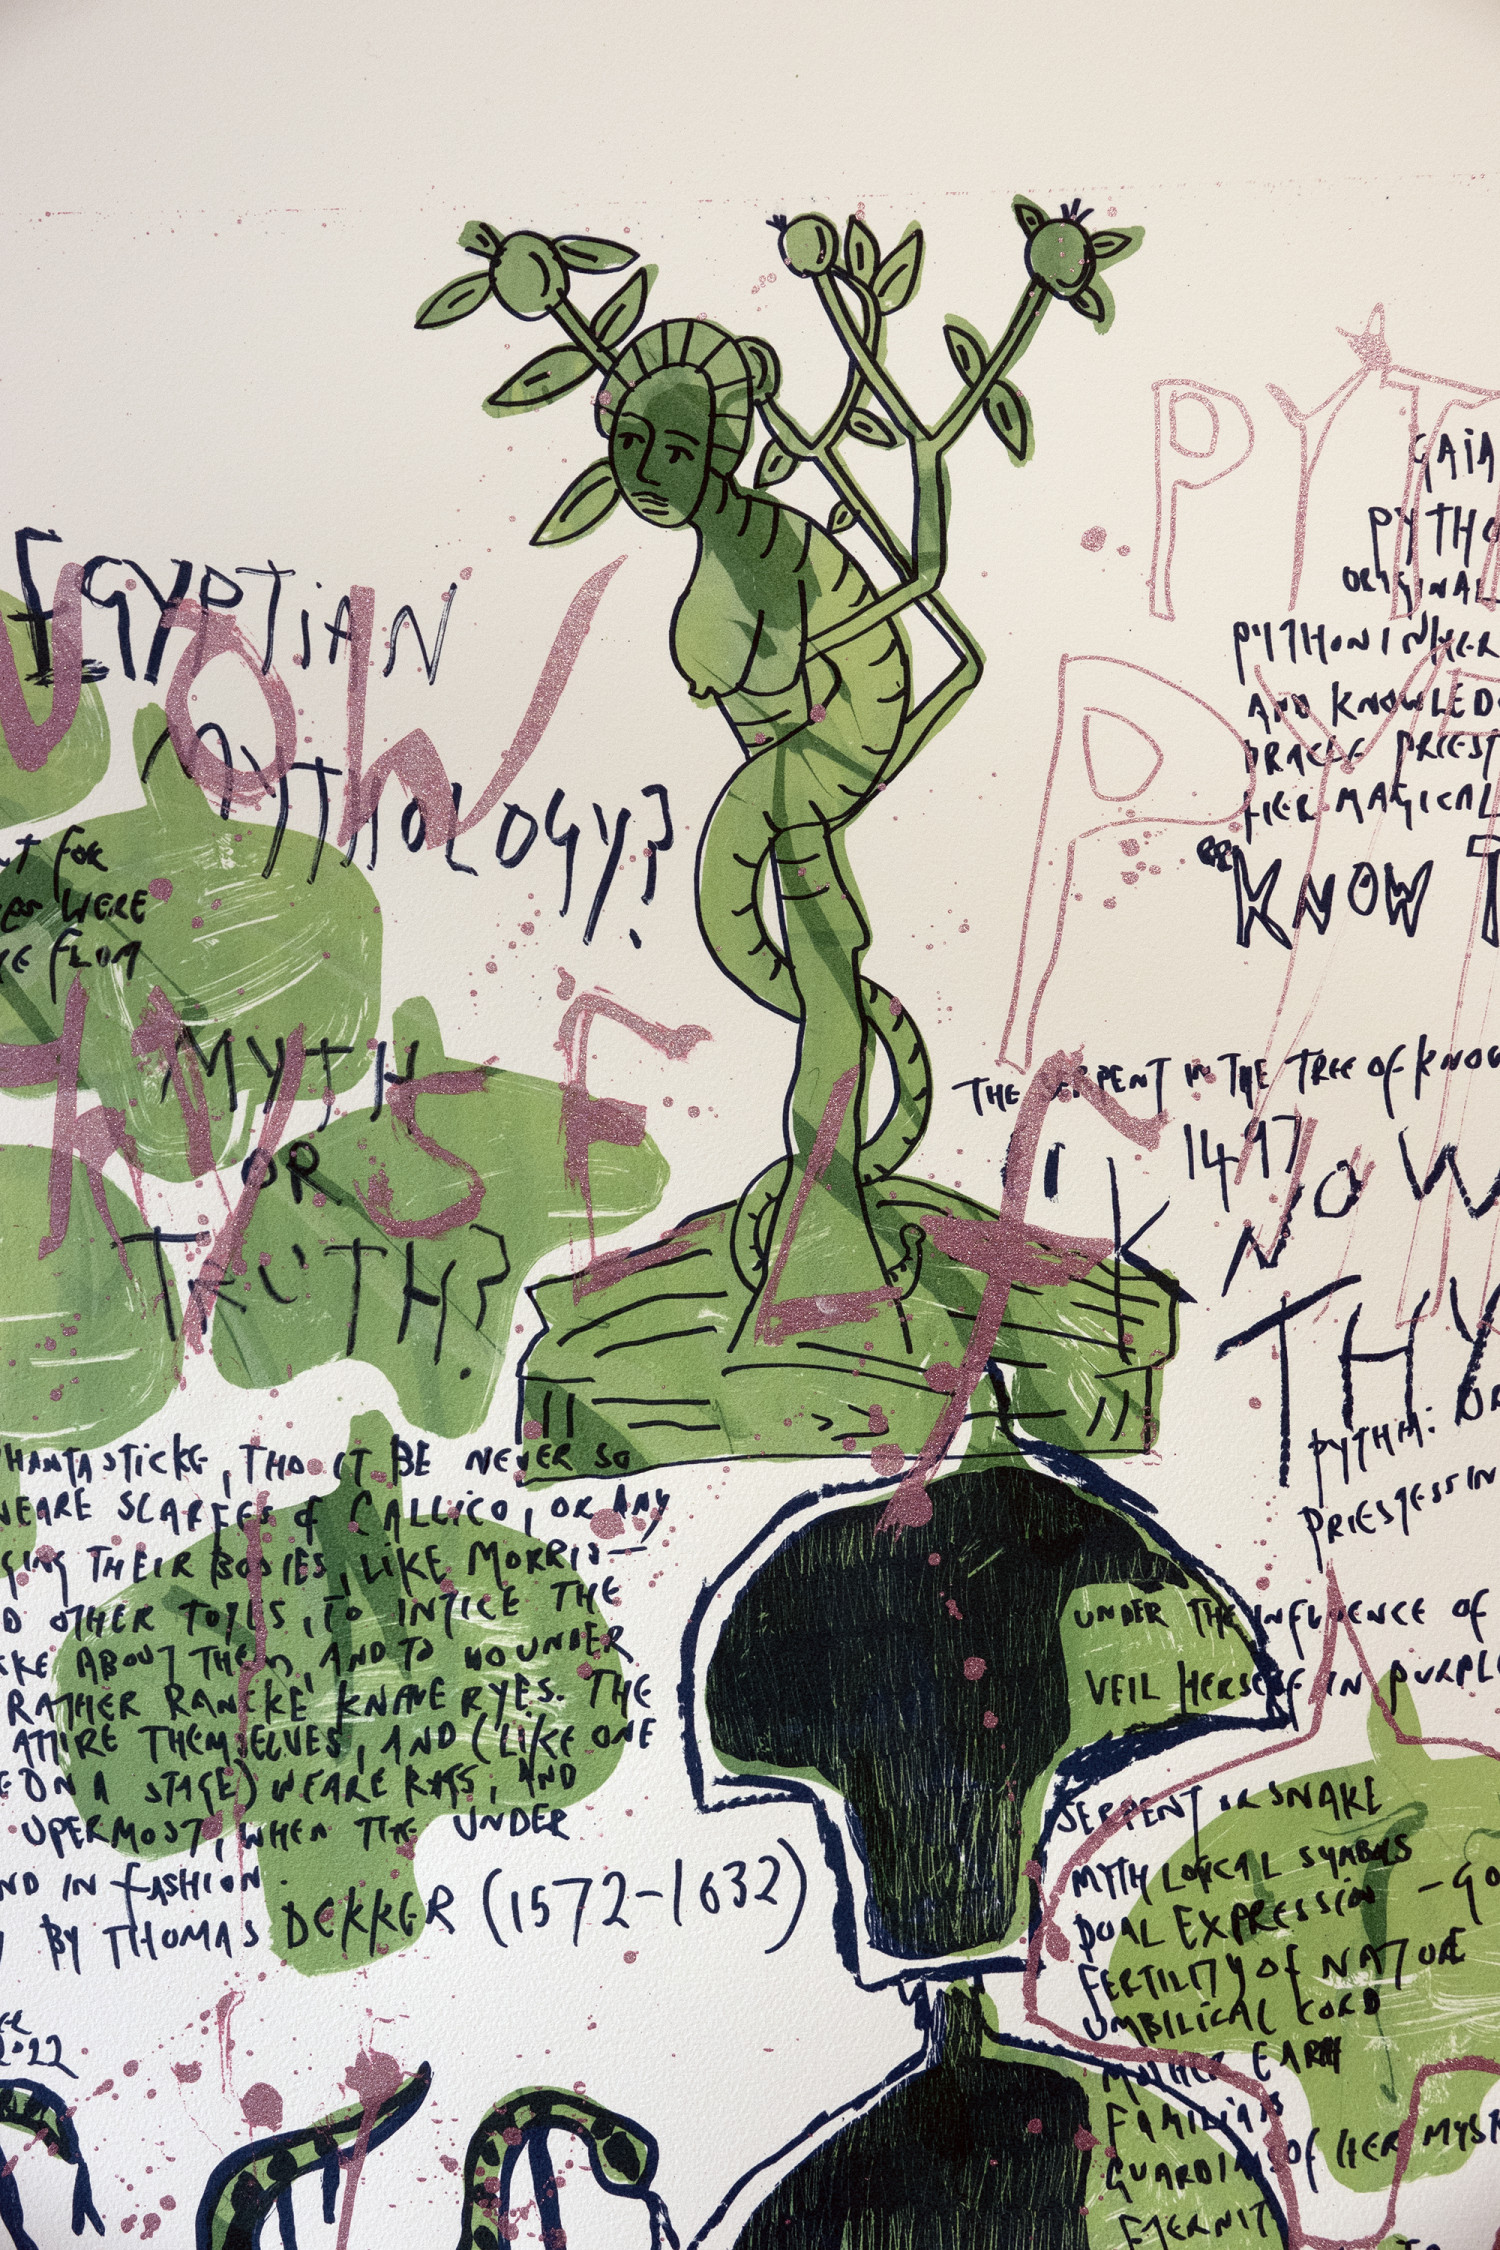 EGYPTIAN
MYTHOLOGY?
FOR
WERE
FROM
MYTH
OR
TRUTH?
KNOW
THYSELF
PHANTASTICKE, THO IT BE NEVER SO
WEARE SCARFES & CALLICO, OR ANY
THEIR BODIES, LIKE MORRIS-
OTHER TOYES, TO INTICE THE
ABOUT THEM, AND TO WOUNDER
RATHER RANCKE KNAVERYES. THE
ATTIRE THEMSELVES, AND (LIKE ONE
ON A STAGE) WEARE RAGS, AND
UPERMOST, WHEN THE UNDER
AND IN FASHION.
BY THOMAS DEKKER (1572-1632)
2022
PYT
PYT
GAIA
PYTHO
ORIGINAL
PYTHON IN HER
AND KNOWLED
ORACLE PRIEST
HER MAGICAL
"KNOW T
THE SERPENT IN THE TREE OF KNOW
1497
"KNOW
THY
PYTHIA: OR
PRIESTESS IN
UNDER THE INFLUENCE OF
VEIL HERSELF IN PURPLE
SERPENT OR SNAKE
MYTHLOGICAL SYMBOLS
DUAL EXPRESSION - GO
FERTILITY OF NATURE
UMBILICAL CORD
MOTHER EARTH
FAMILIARS
GUARDIAN OF HER MYST
ETERNITY